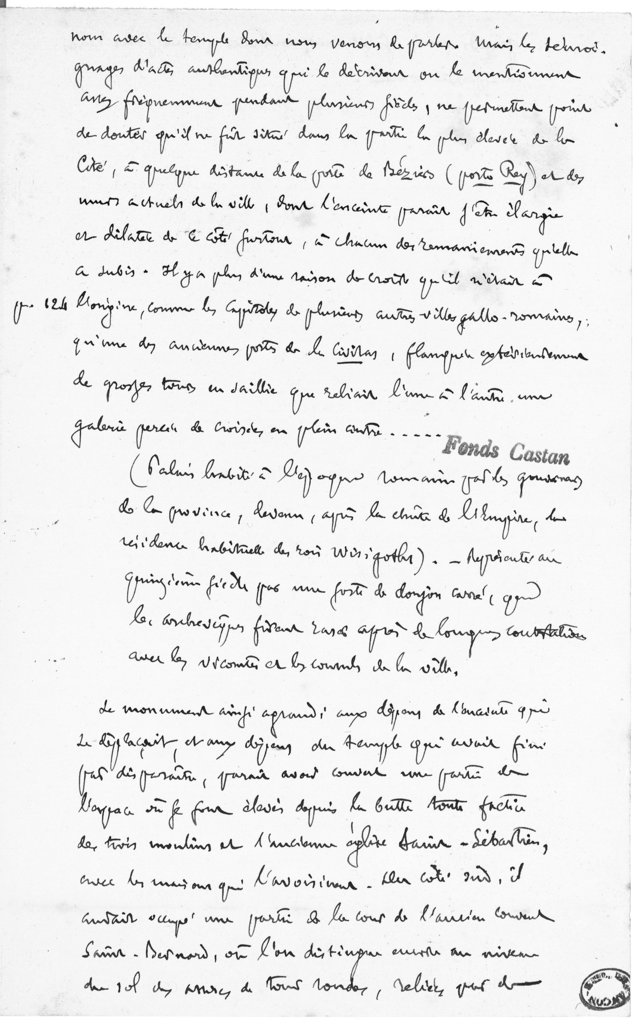 nom avec le temple dont nous venons de parler. Mais les témoi-
gnages d'actes authentiques qui le décrivent ou le mentionnent
assez fréquemment pendant plusieurs siècles, ne permettent point
de douter qu'il ne fût situé dans la partie la plus élevée de la
Cité, à quelque distance de la porte de Béziers (porte Rey) et des
murs actuels de la ville, dont l'enceinte paraît s'être élargie
et dilatée de ce côté surtout, à chacun des remaniements qu'elle
a subis. Il y a plus d'une raison de croire qu'il n'était à
124 l'origine, comme les Capitoles de plusieurs autres villes gallo-romaines,
qu'une des anciennes portes de la Civitas, flanquée extérieurement
de grosses tours en saillie que reliait l'une à l'autre une
galerie percée de croisées en plein cintre.....
Fonds Castan
(Palais habité à l'époque romaine par les gouverneurs
de la province, devenu, après la chute de l'Empire, la
résidence habituelle des rois Wisigoths). - Représenté au
quinzième siècle par une sorte de donjon carré, que
les archevêques firent raser après de longues contestations
avec les vicomtes et les consuls de la ville.
Le monument ainsi agrandi aux dépens de l'enceinte qui
se déplaçait, et aux dépens du temple qui avait fini
par disparaître, paraît avoir couvert une partie de
l'espace où se sont élevés depuis la butte toute factice
des trois moulins et l'ancienne église Saint-Sébastien,
avec les maisons qui l'avoisinent. Du côté sud, il
aurait occupé une partie de la cour de l'ancien couvent
Saint-Bernard, où l'on distingue encore au niveau
du sol des assises de tours rondes, reliées par de